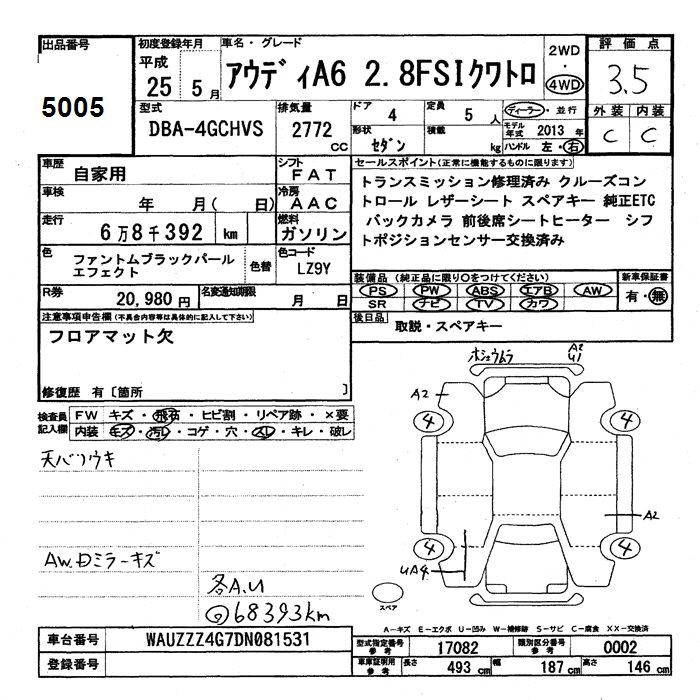 出品番号
5005
初度登録年月
平成
25 5月
車名・グレード
アウディA6 2.8FSIクワトロ
2WD
・
4WD
評価点
3.5
外装 内装
C C
型式
DBA-4GCHVS
排気量
2772
CC
ドア
4
定員
5 人
形状
セダン
積載
kg
ディーラー・並行
モデル年式 2013 年
ハンドル 左・右
車歴
自家用
シフト
FAT
車検
年 月( 日)
冷房
AAC
走行
6万8千392 km
燃料
ガソリン
色
ファントムブラックパール
エフェクト
色替
色コード
LZ9Y
R券
20,980 円
名変通知期限
月 日
セールスポイント(正常に機能するものに限ります)
トランスミッション修理済み クルーズコン
トロール レザーシート スペアキー 純正ETC
バックカメラ 前後席シートヒーター シフ
トポジションセンサー交換済み
装備品(純正品に限り○をつけてください)
PS PW ABS エアB AW
SR ナビ TV カワ
新車保証書
有・無
後日品
取説・スペアキー
注意事項申告欄(不具合内容等は具体的に記入して下さい)
フロアマット欠
修復歴 有〔箇所 〕
検査員
記入欄
FW キズ・飛石・ヒビ割・リペア跡・×要
内装 キズ・汚レ・コゲ・穴・スレ・キレ・破レ
天バリウキ
AW.Dミラーキズ
各A.U
68393km
ホショウムラ
A2
U1
A2
4
4
A2
4
4
UA4.
スペア
A-キズ E-エクボ U-凹み W-補修跡 S-サビ C-腐食 XX-交換済
車台番号
WAUZZZ4G7DN081531
登録番号
型式指定番号
参考
17082
類別区分番号
参考
0002
車庫証明用
参考
長さ
493 cm
幅
187 cm
高さ
146 cm